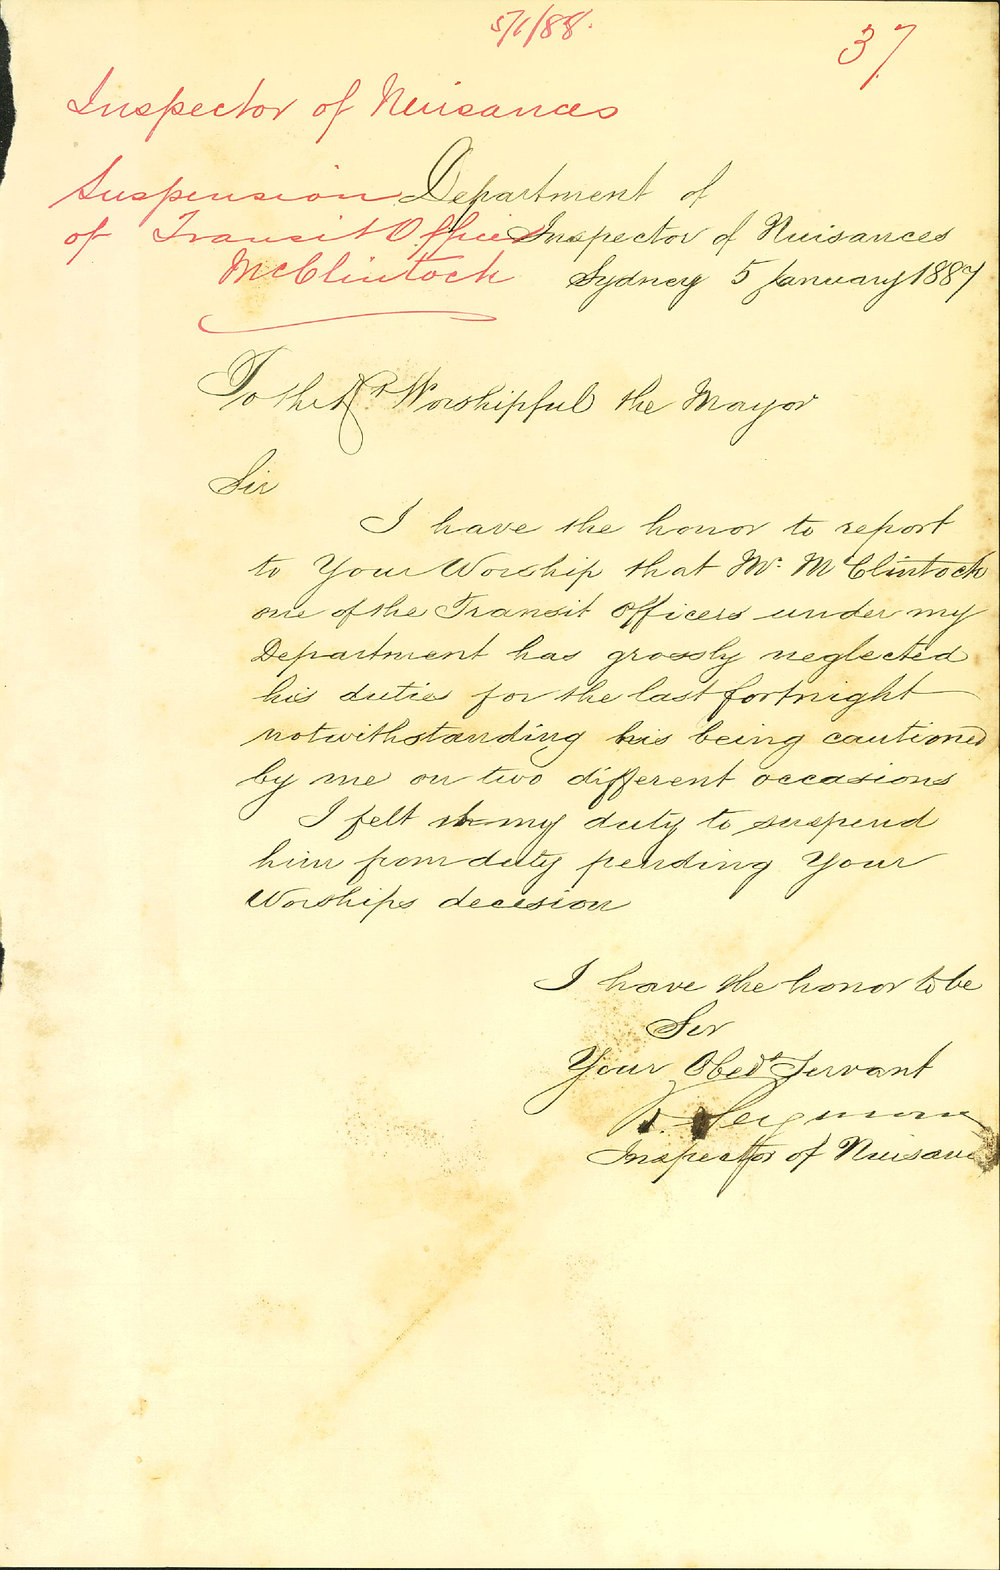 5/1/88.
37
Inspector of Nuisances
Suspension
of Transit Officer
McClintock
Department of
Inspector of Nuisances
Sydney 5 January 1887
To the Rt Worshipful the Mayor
Sir
I have the honor to report
to Your Worship that Mr. McClintock
one of the Transit Officers under my
Department has grossly neglected
his duties for the last fortnight
notwithstanding his being cautioned
by me on two different occasions
I felt it my duty to suspend
him from duty pending Your
Worships decision
I have the honor to be
Sir
Your Obedt Servant
Seymour
Inspector of Nuisanc